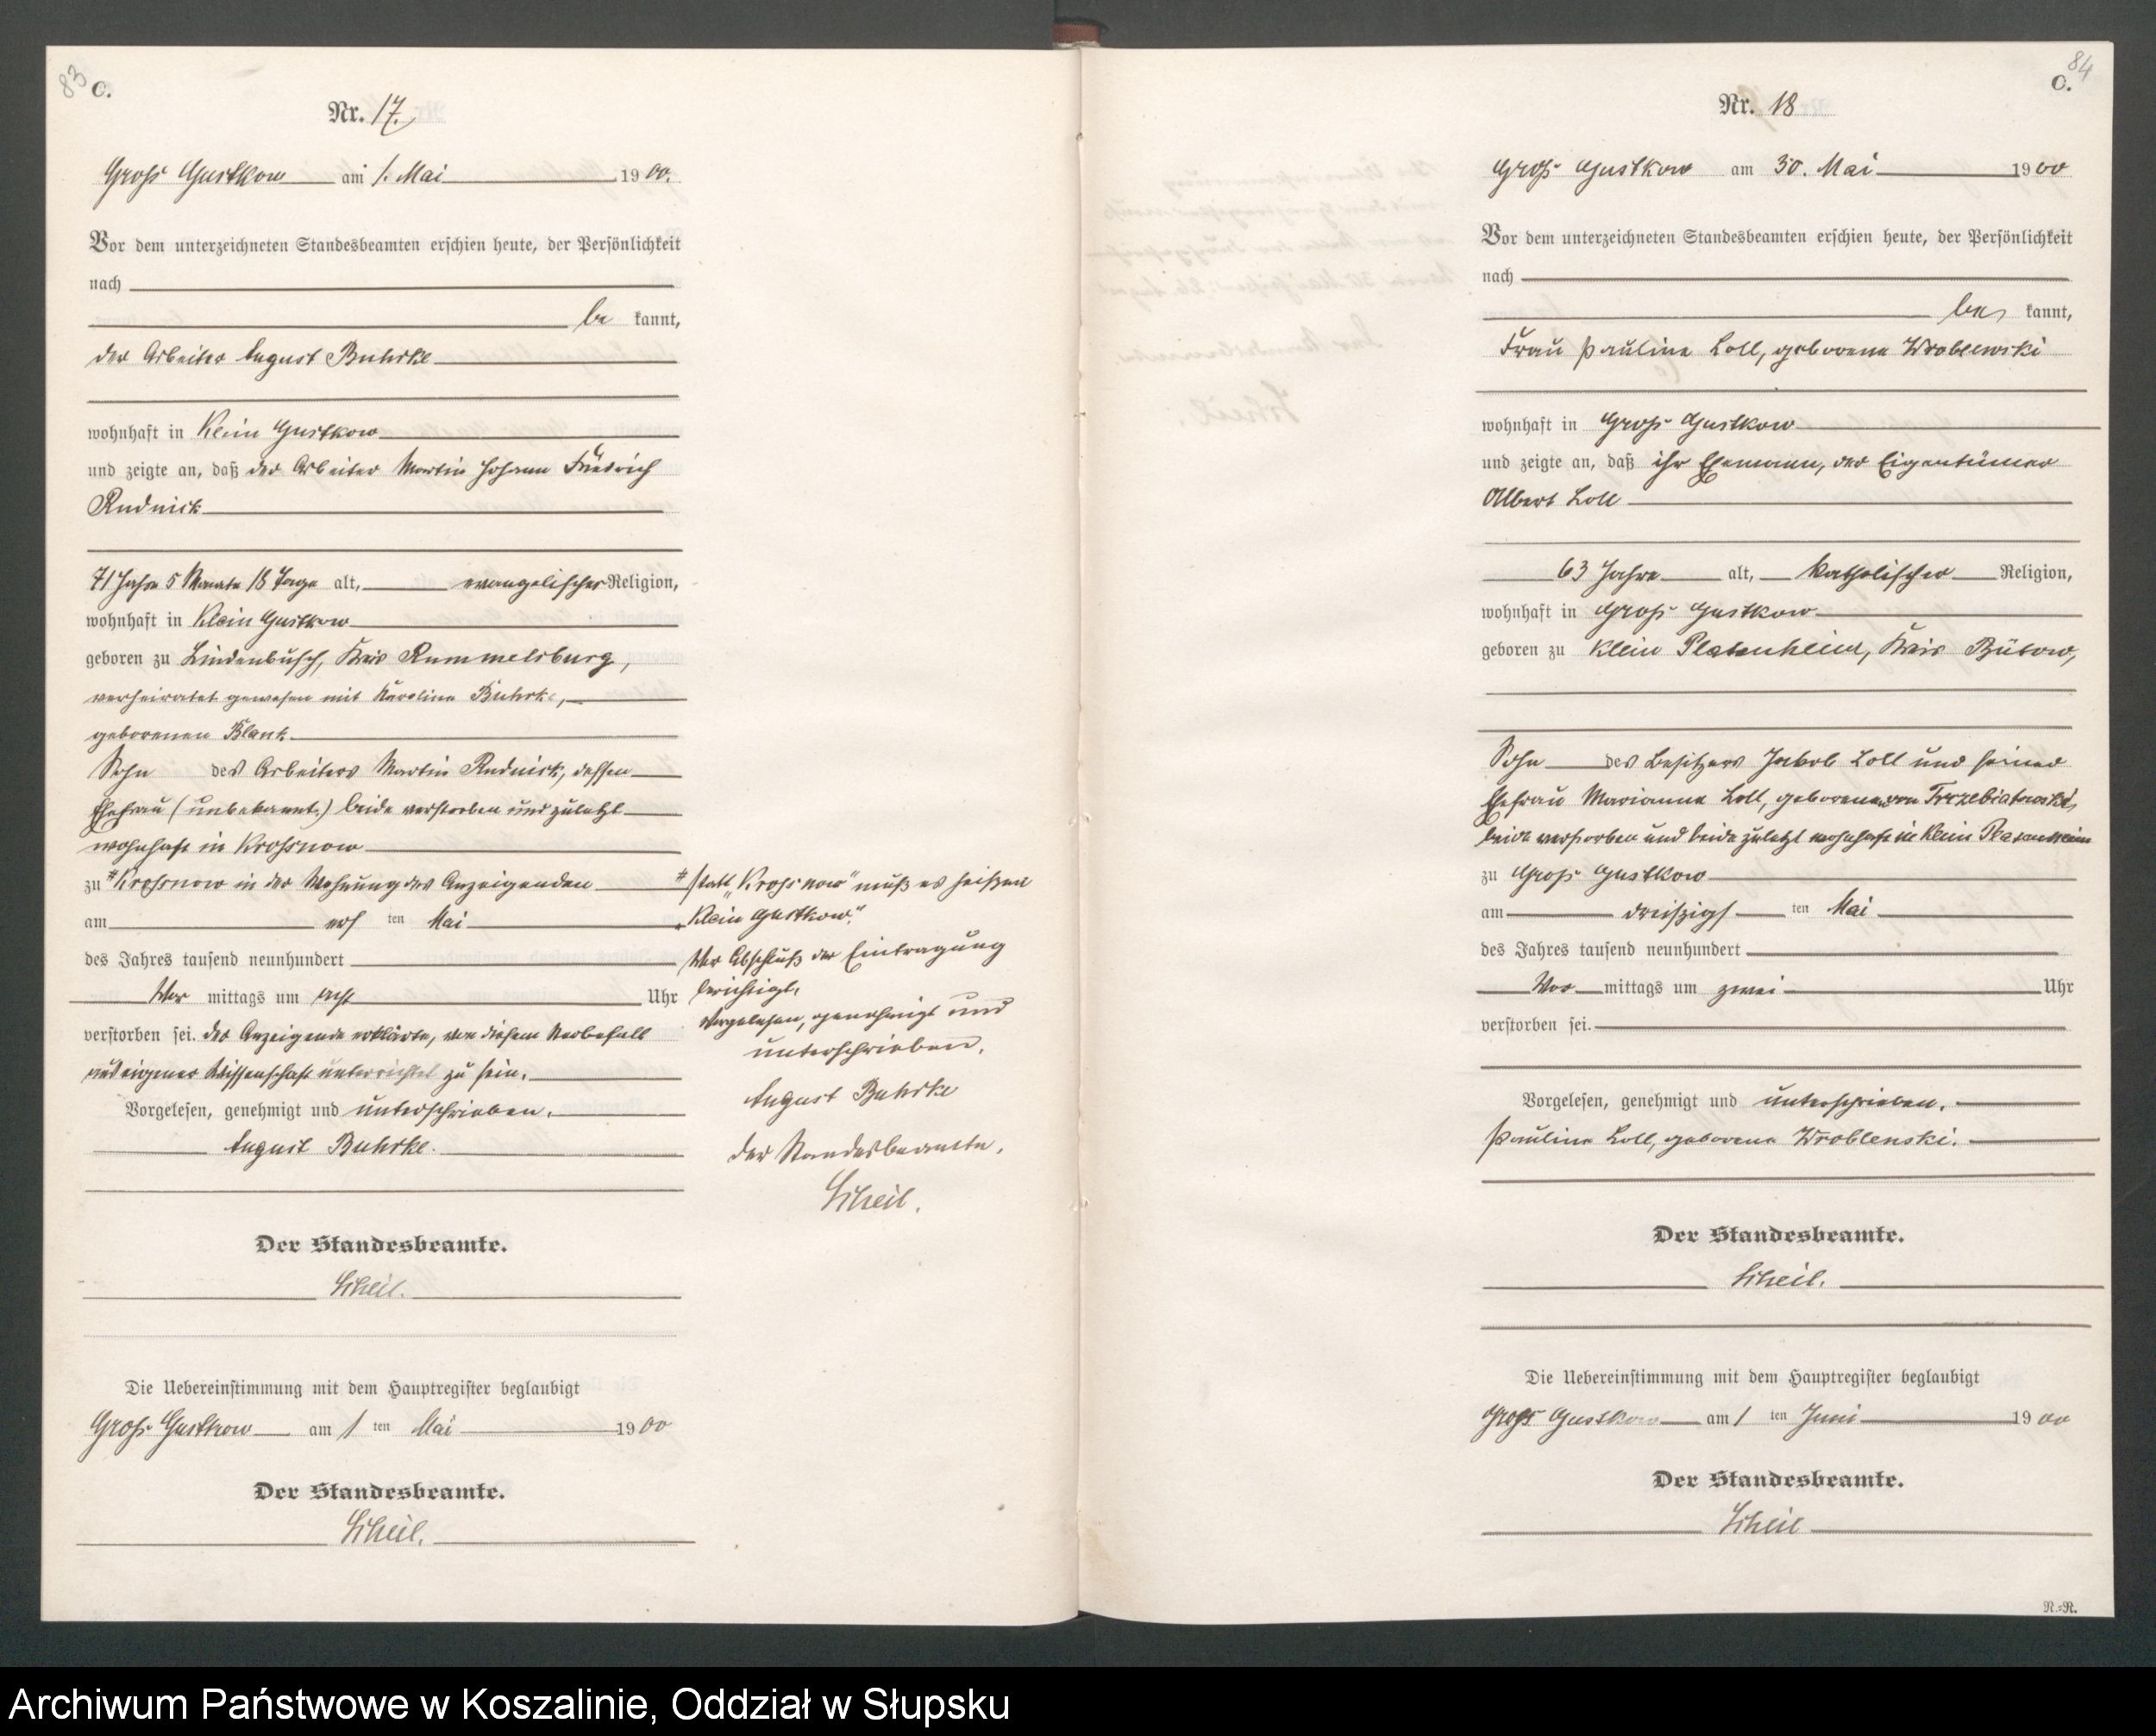 83
C.
Nr. 17.
Groß Gustkow am 1. Mai 1900.
Vor dem unterzeichneten Standesbeamten erschien heute, der Persönlichkeit
nach
be kannt,
der Arbeiter August Buhrke
wohnhaft in Klein Gustkow
und zeigte an, daß der Arbeiter Martin Johann Friedrich
Rudnick
71 Jahre 5 Monate 18 Tage alt, evangelischer Religion,
wohnhaft in Klein Gustkow
geboren zu Lindenbusch, Kreis Rummelsburg,
verheiratet gewesen mit Karoline Buhrke,
geborenen Blank
Sohn des Arbeiters Martin Rudnick, dessen
Ehefrau (unbekannt.) beide verstorben und zuletzt
wohnhaft in Krossnow
zu # Krossnow in der Wohnung des Anzeigenden
am ersten Mai
des Jahres tausend neunhundert
Vor mittags um acht Uhr
verstorben sei. Der Anzeigende erklärte, von diesem Sterbefall
aus eigener Wissenschaft unterrichtet zu sein.
Vorgelesen, genehmigt und unterschrieben.
August Buhrke.
Der Standesbeamte.
Scheil.
Die Uebereinstimmung mit dem Hauptregister beglaubigt
Groß Gustkow am 1 ten Mai 1900
Der Standesbeamte.
Scheil.
# statt „Krossnow" muß es heißen
„Klein Gustkow."
Vor Abschluß der Eintragung
berichtigt.
Vorgelesen, genehmigt und
unterschrieben.
August Buhrke
Der Standesbeamte.
Scheil.
84
C.
Nr. 18
Groß Gustkow am 30. Mai 1900
Vor dem unterzeichneten Standesbeamten erschien heute, der Persönlichkeit
nach
be kannt,
Frau Pauline Loll, geborene Wroblewski
wohnhaft in Groß Gustkow
und zeigte an, daß ihr Ehemann, der Eigentümer
Albert Loll
63 Jahre alt, katholischer Religion,
wohnhaft in Groß Gustkow
geboren zu Klein Platenheim, Kreis Bütow,
Sohn des Besitzers Jakob Loll und seiner
Ehefrau Marianna Loll, geborenen von Trzebiatowski,
beide verstorben und beide zuletzt wohnhaft in Klein Platenheim
zu Groß Gustkow
am dreißigsten Mai
des Jahres tausend neunhundert
Vor mittags um zwei Uhr
verstorben sei.
Vorgelesen, genehmigt und unterschrieben.
Pauline Loll, geborene Wroblenski.
Der Standesbeamte.
Scheil.
Die Uebereinstimmung mit dem Hauptregister beglaubigt
Groß Gustkow am 1 ten Juni 1900
Der Standesbeamte.
Scheil
R.=R.
Archiwum Państwowe w Koszalinie, Oddział w Słupsku